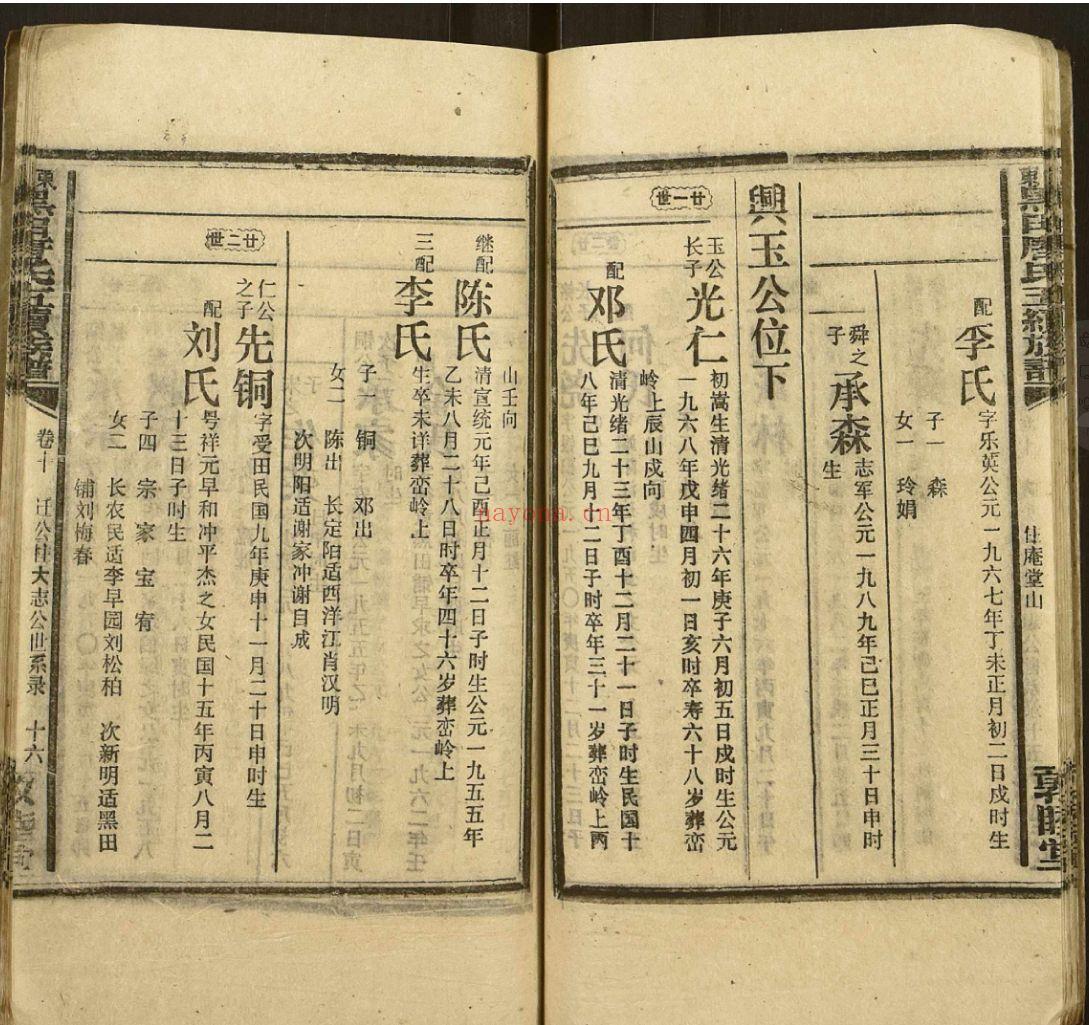 配
李氏
字乐英公元一九六七年丁未正月初二日戌时生
住庵堂山
子一 森
女一 玲娟
舜之
子
承森
志军公元一九八九年己巳正月三十日申时
生
興玉公位下
廿一世
玉公
长子
光仁
初嵩生清光绪二十六年庚子六月初五日戌时生公元
一九六八年戊申四月初一日亥时卒寿六十八岁葬峦
岭上辰山戌向
配
邓氏
清光绪二十三年丁酉十二月二十一日子时生民国十
八年己巳九月十二日子时卒年三十一岁葬峦岭上丙
山壬向
继配
陈氏
清宣统元年己酉正月十二日子时生公元一九五五年
乙未八月二十八日时卒年四十六岁葬峦岭上
三配
李氏
生卒未详葬峦岭上
子一 铜 邓出
女二 陈出 长定阳适西洋江肖汉明
次明阳适谢家冲谢自成
廿二世
仁公
之子
先铜
字受田民国九年庚申十一月二十日申时生
配
刘氏
号祥元早和冲平杰之女民国十五年丙寅八月二
十三日子时生
子四 宗 家 宝 宥
女二 长农民适李早园刘松柏 次新明适黑田
铺刘梅春
卷十 迁公柱大志公世系录 十六
nayona.cn